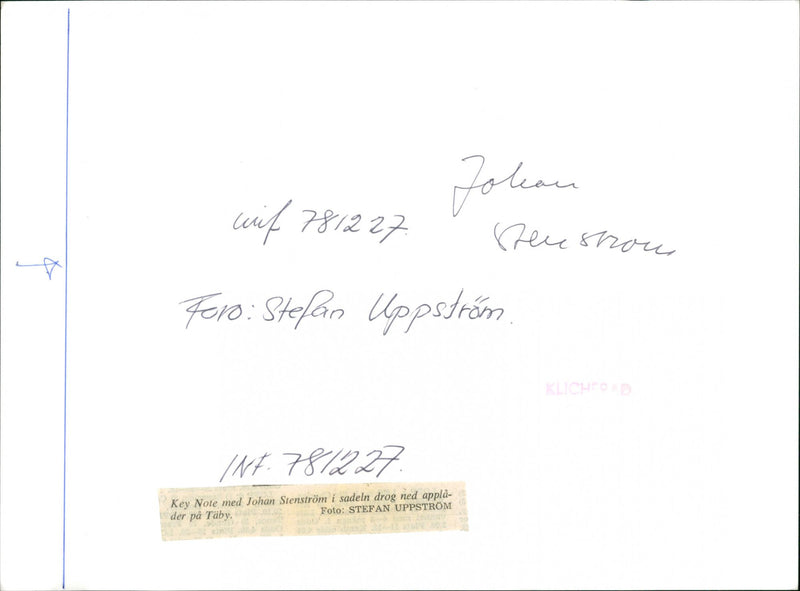 Johan
inf 781227.
Stenstrom
Foto: Stefan Uppström.
KLICHERAD
INF. 781227.
Key Note med Johan Stenström i sadeln drog ned applå-
der på Täby. Foto: STEFAN UPPSTRÖM